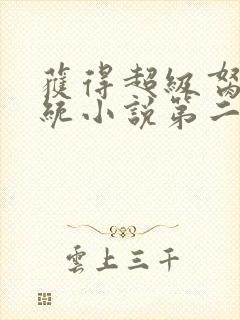 獲得超級
統小說第二
雲上三千